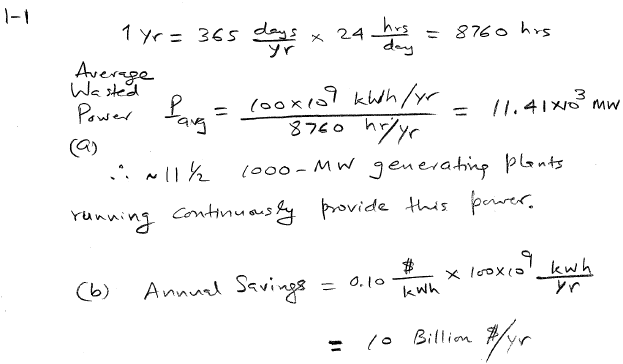 1-1
1 yr = 365 days/yr × 24 hrs/day = 8760 hrs
Average
Wasted
Power Pavg = 100×10⁹ kWh/yr / 8760 hr/yr = 11.41×10³ MW
(a)
∴ ~11 1/2 1000-MW generating plants
running continuously provide this power.
(b) Annual Savings = 0.10 $/kWh × 100×10⁹ kWh/yr
= 10 Billion $/yr